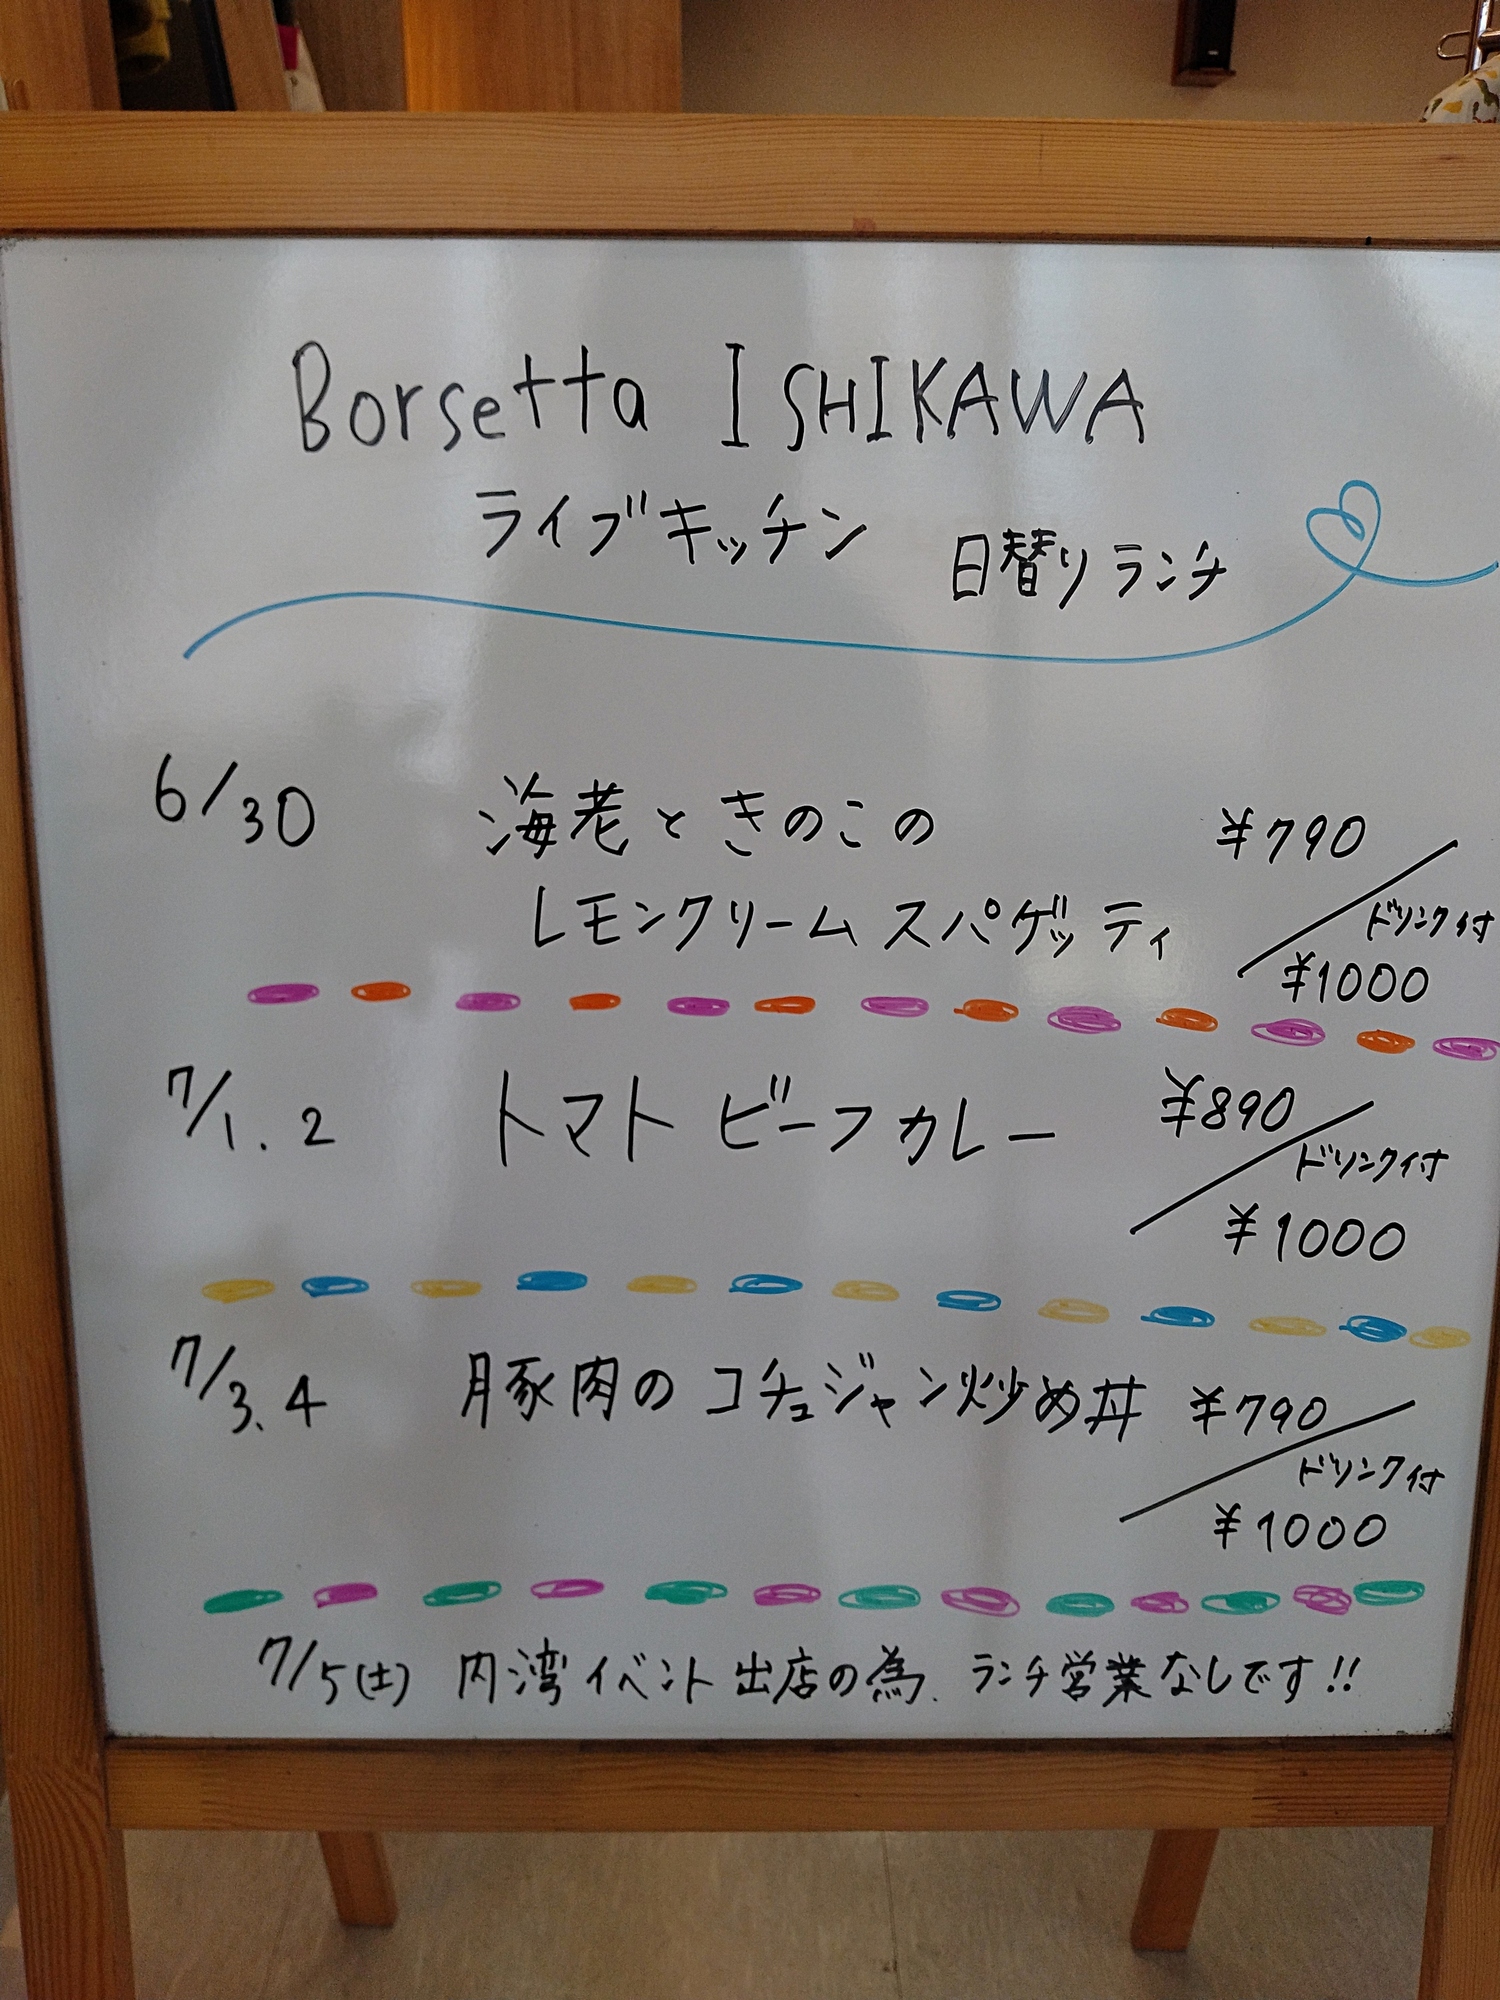 Borsetta ISHIKAWA
ライブキッチン 日替りランチ
6/30 海老ときのこの ¥790
レモンクリームスパゲッティ ドリンク付
¥1000
7/1.2 トマトビーフカレー ¥890
ドリンク付
¥1000
7/3.4 豚肉のコチュジャン炒め丼 ¥790
ドリンク付
¥1000
7/5(土) 内湾イベント出店の為、ランチ営業なしです!!